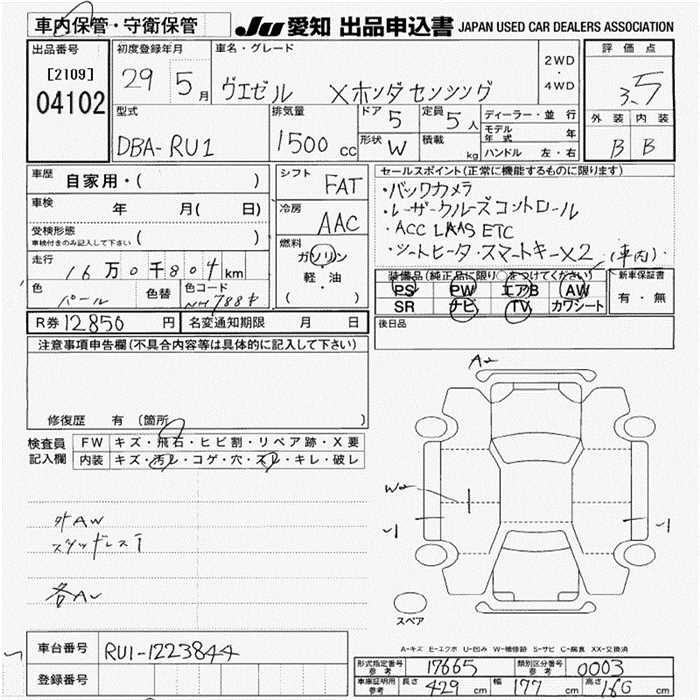 車内保管・守衛保管
JU 愛知 出品申込書 JAPAN USED CAR DEALERS ASSOCIATION
出品番号
[2109]
04102
初度登録年月
29 5月
車名・グレード
ヴエゼル Xホンダセンシング
2WD
・
4WD
評価点
3.5
外装 内装
B B
型式
DBA-RU1
排気量
1500 cc
ドア 5
形状 W
定員 5人
積載 kg
ディーラー・並行
モデル年式 年
ハンドル 左・右
車歴
自家用・( )
車検
年 月( 日)
受検形態
車検付きのみ記入して下さい ( )
走行
16万0千804km
色 パール
色替
色コード
NH788P
シフト
FAT
冷房
AAC
燃料
ガソリン
軽・油
( )
セールスポイント(正常に機能するものに限ります)
・バックカメラ
・レーザークルーズコントロール
・ACC LKAS ETC
・シートヒータ・スマートキー×2 (車内)
装備品(純正品に限り○をつけてください)
PS PW エアB AW
SR ナビ TV カワシート
新車保証書
有・無
R券 12850 円
名変通知期限 月 日
後日品
注意事項申告欄(不具合内容等は具体的に記入して下さい)
修復歴 有 (箇所
検査員記入欄
FW キズ・飛石・ヒビ割・リペア跡・X要
内装 キズ・汚レ・コゲ・穴・スレ・キレ・破レ
外AW
スタッドレス
各A
A
W
スペア
A-キズ E-エクボ U-凹み W-補修跡 S-サビ C-腐食 XX-交換済
車台番号
RU1-1223844
登録番号
形式指定番号 参考 17665
類別区分番号 参考 0003
車庫証明用 参考
長さ 429 cm 幅 177 cm 高さ 166 cm